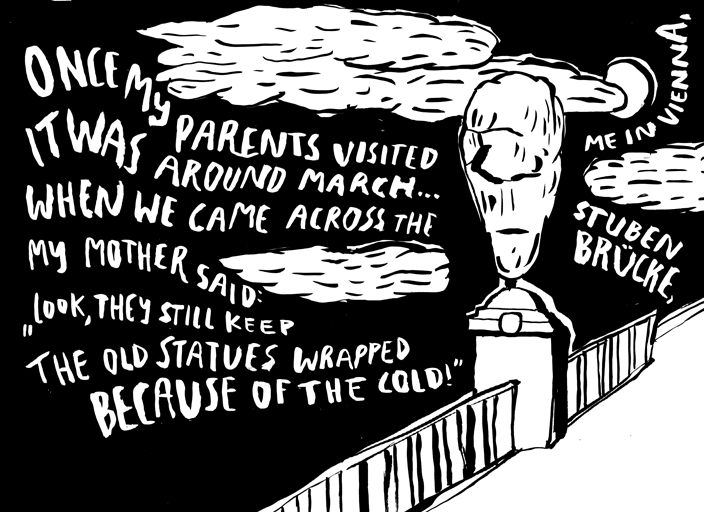 ONCE MY PARENTS VISITED
ME IN VIENNA,
IT WAS AROUND MARCH...
WHEN WE CAME ACROSS THE
STUBEN
BRÜCKE,
MY MOTHER SAID:
„LOOK, THEY STILL KEEP
THE OLD STATUES WRAPPED
BECAUSE OF THE COLD!"